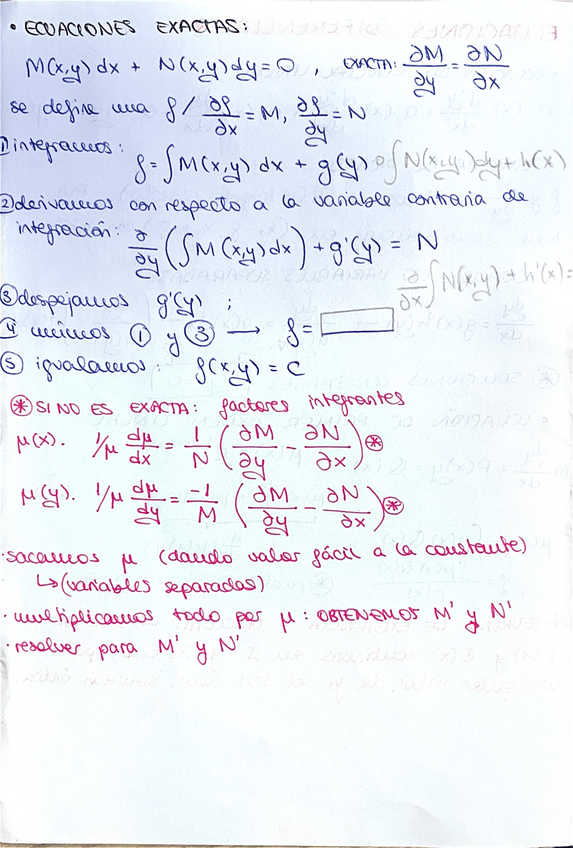 • ECUACIONES EXACTAS:
M(x,y) dx + N(x,y) dy = 0 , EXACTA: ∂M/∂y = ∂N/∂x
se define una f / ∂f/∂x = M, ∂f/∂y = N
① integramos:
f = ∫ M(x,y) dx + g(y) o ∫ N(x,y) dy + h(x)
② derivamos con respecto a la variable contraria de
integración: ∂/∂y (∫ M(x,y) dx) + g'(y) = N
∂/∂x ∫ N(x,y) + h'(x) =
③ despejamos g'(y) ;
④ unimos ① y ③ → f =
⑤ igualamos: f(x,y) = C
⊛ SI NO ES EXACTA: factores integrantes
μ(x). 1/μ dμ/dx = 1/N (∂M/∂y - ∂N/∂x) ⊛
μ(y). 1/μ dμ/dy = -1/M (∂M/∂y - ∂N/∂x) ⊛
· sacamos μ (dando valor fácil a la constante)
↳ (variables separadas)
· multiplicamos todo por μ : OBTENEMOS M' y N'
· resolver para M' y N'